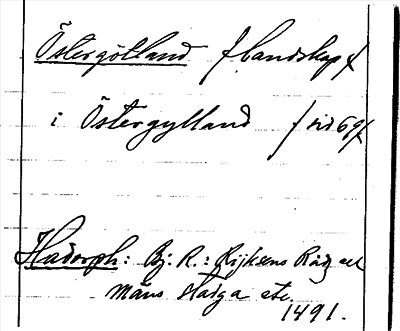 Östergötland /landskap/
i Östergylland /sid 69/
Hadorph: Bj: R.: Rijksens Råd och
Måns Harga etc.
1491.